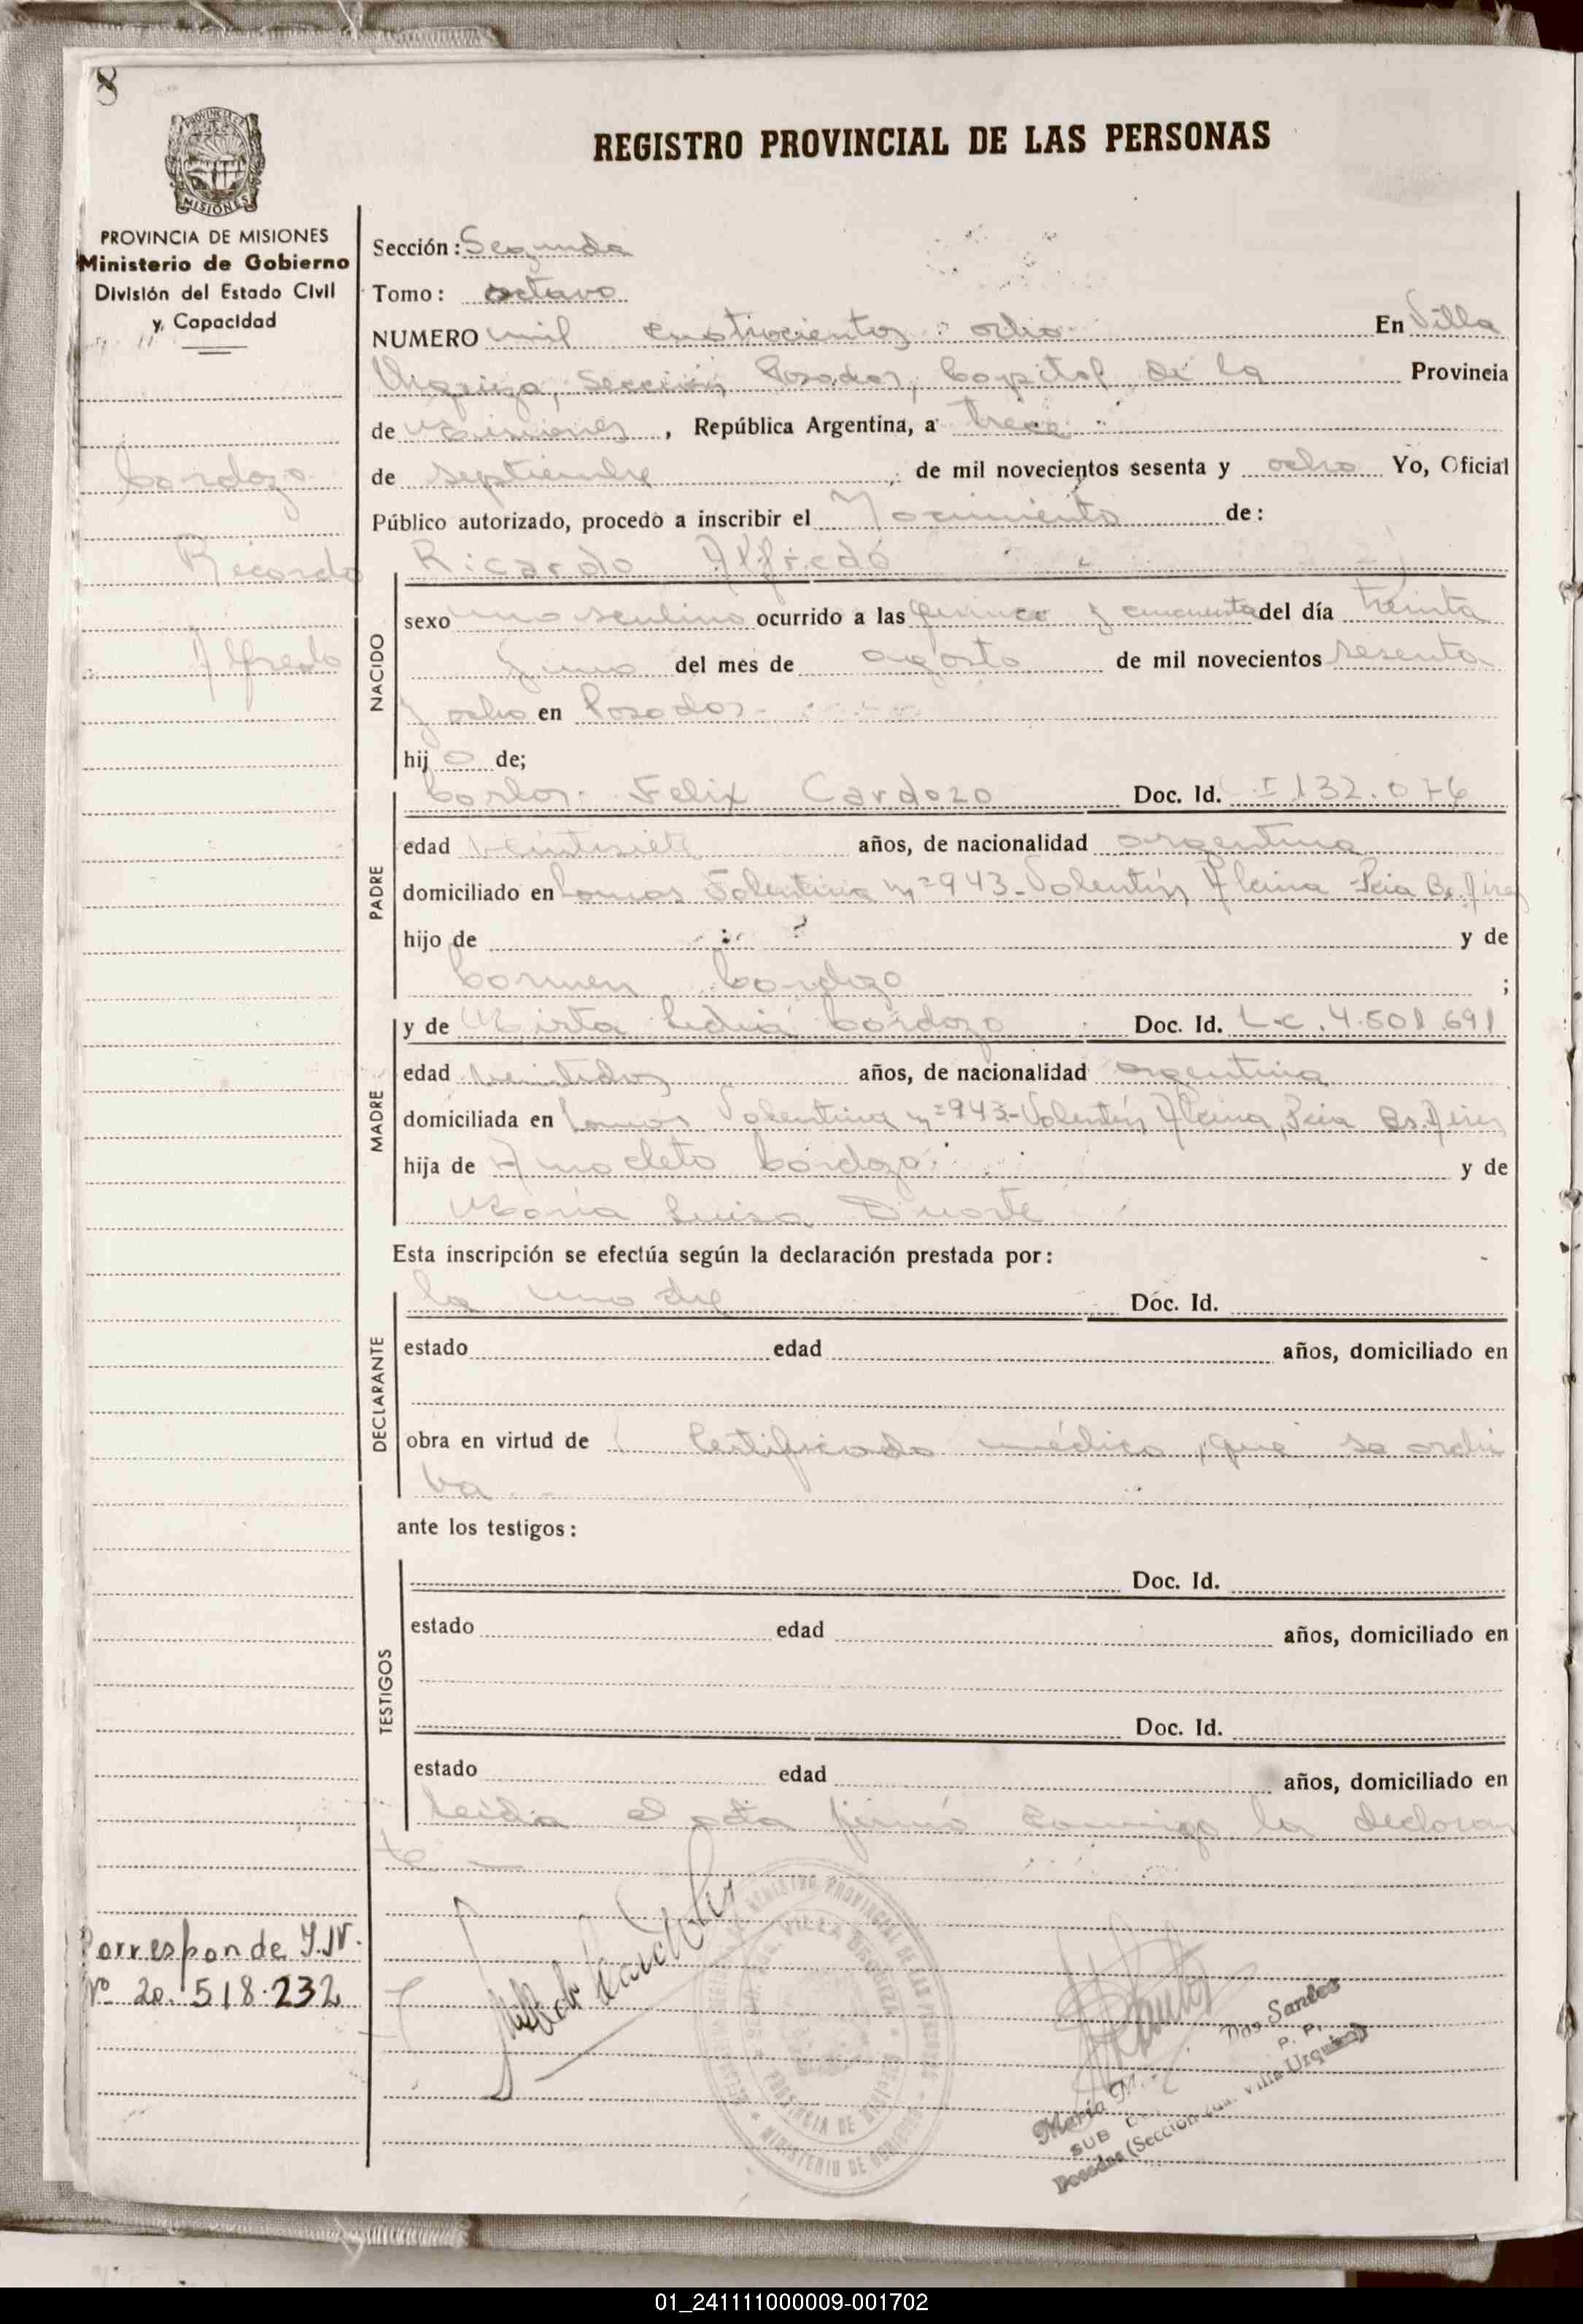 8
REGISTRO PROVINCIAL DE LAS PERSONAS
PROVINCIA DE MISIONES
Ministerio de Gobierno
División del Estado Civil
y, Capacidad
Cardozo
Ricardo
Alfredo
Sección: Segunda
Tomo: octavo
NUMERO mil cuatrocientos ocho En Villa
Urquiza, Sección Posadas, Capital de la Provincia
de Misiones, República Argentina, a trece
de septiembre de mil novecientos sesenta y ocho Yo, Oficial
Público autorizado, procedo a inscribir el Nacimiento de:
Ricardo Alfredo
NACIDO
sexo masculino ocurrido a las quince y cincuenta del día treinta
y uno del mes de agosto de mil novecientos sesenta
y ocho en Posadas
hij o de;
PADRE
Carlos Felix Cardozo Doc. Id. I 132.076
edad veintisiete años, de nacionalidad argentina
domiciliado en Lomas Valentina nº 943-Valentín Alsina Pcia Bs. Aires
hijo de ? y de
Carmen Cardozo ;
MADRE
y de Mirta Lidia Cardozo Doc. Id. L-C. 4.501.691
edad veintidos años, de nacionalidad argentina
domiciliada en Lomas Valentina nº 943-Valentín Alsina, Pcia Bs. Aires
hija de Anacleto Cardozo y de
María Luisa Duarte
Esta inscripción se efectúa según la declaración prestada por:
DECLARANTE
la madre Doc. Id.
estado edad años, domiciliado en
obra en virtud de Certificado médico, que se archi
va
ante los testigos:
TESTIGOS
Doc. Id.
estado edad años, domiciliado en
Doc. Id.
estado edad años, domiciliado en
Leída el acta firmó conmigo la declaran
te
Corresponde I.N.
Nº 20.518.232
REGISTRO PROVINCIAL DE LAS PERSONAS
VILLA URQUIZA
PROVINCIA DE MISIONES
MINISTERIO DE GOBIERNO
María M. Dos Santos
P. P.
SUB
Posadas (Sección 2da. Villa Urquiza)
01_241111000009-001702